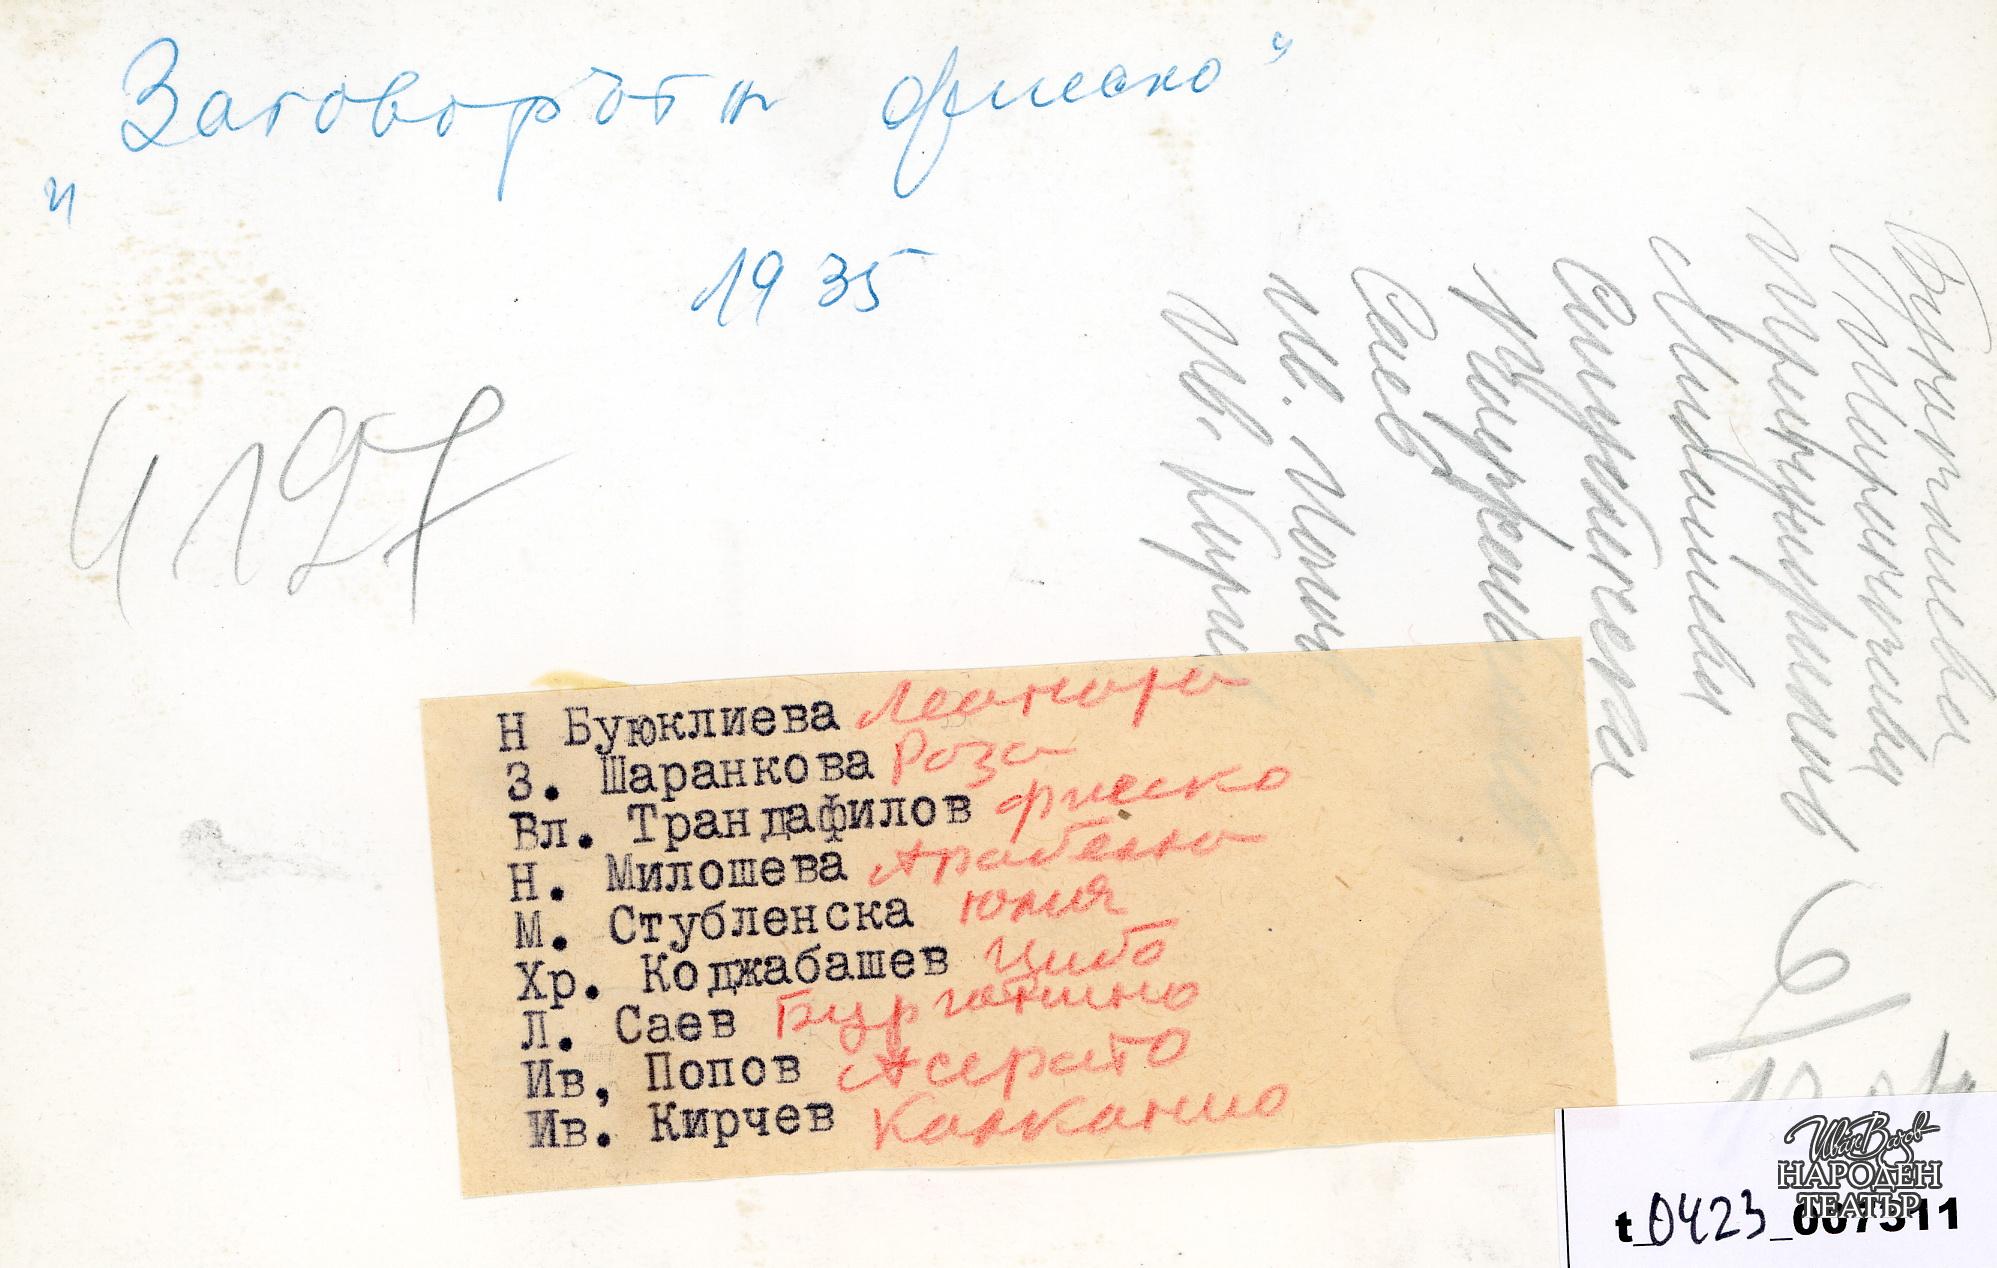 "Заговорътн Фиеско"
1935
4197
Буюклиева
Шаранкова
Трандафилов
Милошева
Стубленска
Коджабашев
Саев
Ив. Попов
Ив. Кирчев
Н Буюклиева Леонора
З. Шаранкова Роза
Вл. Трандафилов Фиеско
Н. Милошева Арабелла
М. Стубленска Юлия
Хр. Коджабашев Цибо
Л. Саев Бургонино
Ив, Попов Асерато
Ив. Кирчев Калканьо
Иван Вазов
НАРОДЕН
ТЕАТЪР
t_0423_007311